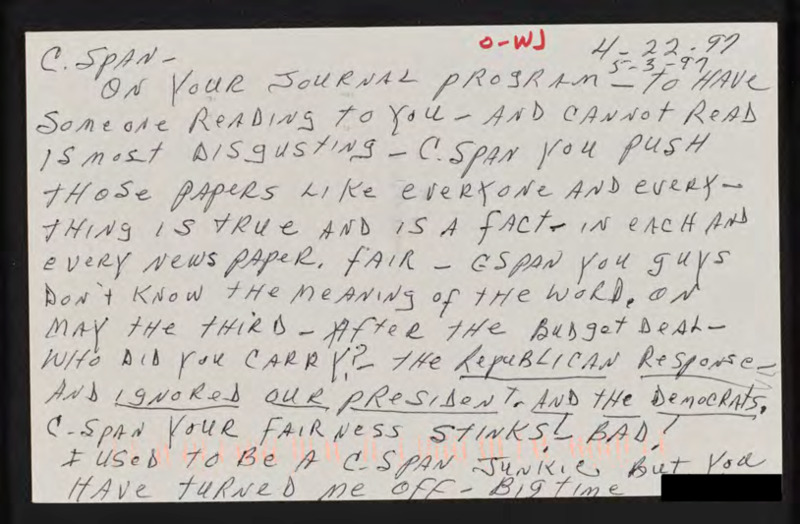 O-WJ
4-22-97
5-3-97
C.SPAN-
ON YOUR JOURNAL PROGRAM - TO HAVE
SOMEONE READING TO YOU - AND CANNOT READ
IS MOST DISGUSTING - C.SPAN YOU PUSH
THOSE PAPERS LIKE EVERYONE AND EVERY-
THING IS TRUE AND IS A FACT - IN EACH AND
EVERY NEWS PAPER. FAIR - CSPAN YOU GUYS
DON'T KNOW THE MEANING OF THE WORD. ON
MAY THE THIRD - AFTER THE BUDGET DEAL -
WHO DID YOU CARRY? - THE REPUBLICAN RESPONSE -
AND IGNORED OUR PRESIDENT. AND THE DEMOCRATS.
C-SPAN YOUR FAIRNESS STINKS! BAD!
I USED TO BE A C-SPAN JUNKIE. BUT YOU
HAVE TURNED ME OFF - BIGTIME